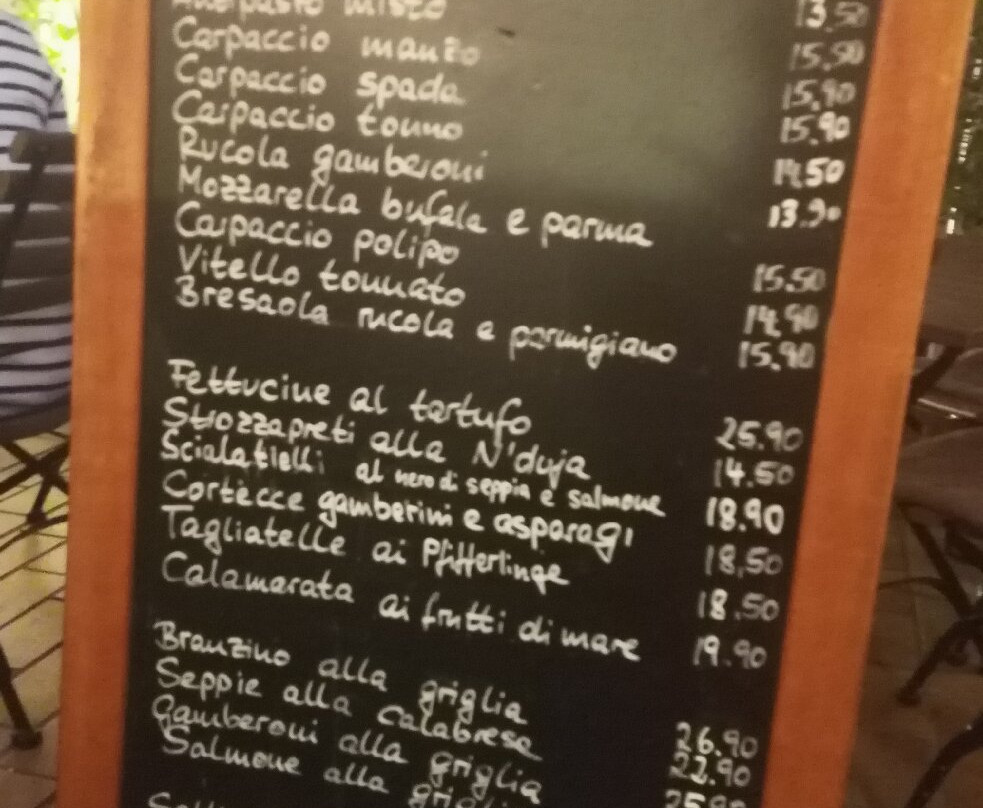 Antipasto misto 13.50
Carpaccio manzo 15.50
Carpaccio spada 15.90
Carpaccio tonno 15.90
Rucola gamberoni 14.50
Mozzarella bufala e parma 13.90
Carpaccio polipo 15.50
Vitello tonnato 14.90
Bresaola rucola e parmigiano 15.90
Fettucine al tartufo 25.90
Strozzapreti alla N'duja 14.50
Scialatielli al nero di seppia e salmone 18.90
Cortècce gamberini e asparagi 18.50
Tagliatelle ai Pfifferlinge 18.50
Calamarata ai frutti di mare 19.90
Branzino alla griglia 26.90
Seppie alla calabrese 22.90
Gamberoni alla griglia 25.90
Salmone alla griglia